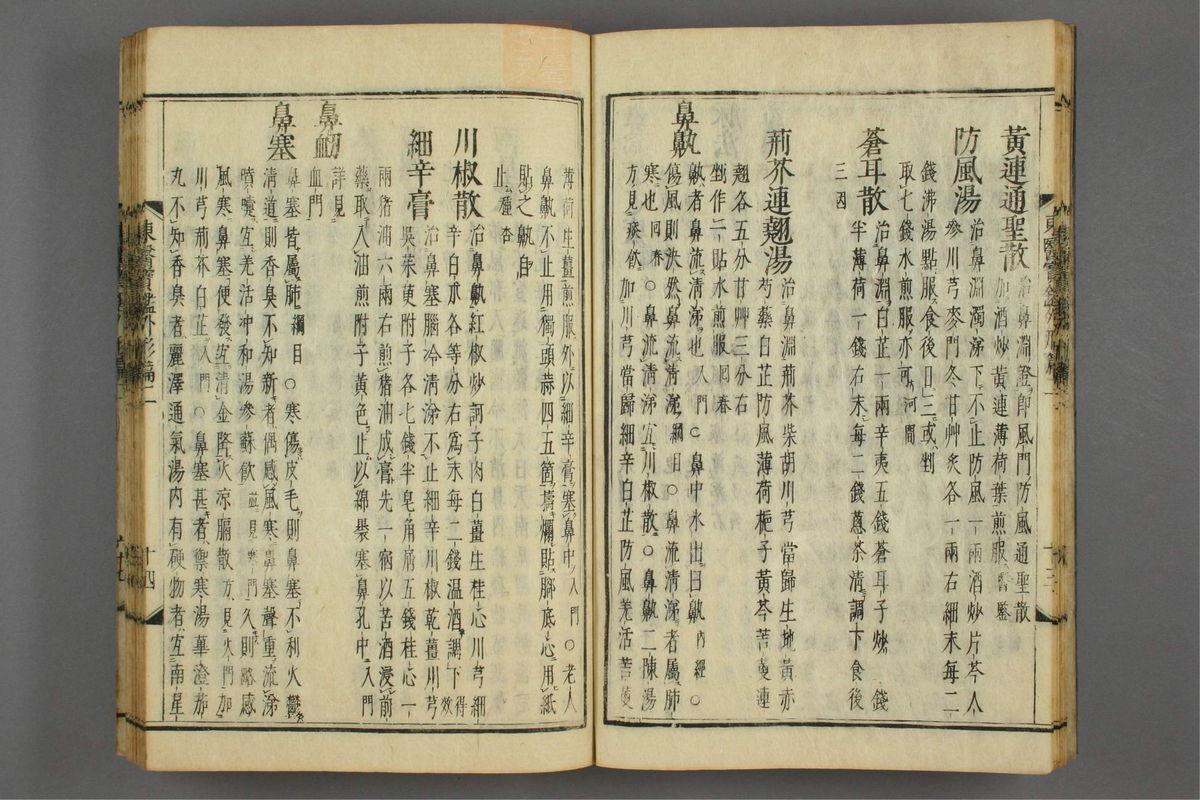 黃連通聖散 治鼻淵證即風門防風通聖散
加酒炒黃連薄荷葉煎服 醫鑒
防風湯 治鼻淵濁涕下不止防風一兩酒炒片芩人
參川芎麥門冬甘艸炙各一兩右細末每二
錢沸湯點服食後日三或剉
取七錢水煎服亦可 河間
蒼耳散 治鼻淵白芷一兩辛夷五錢蒼耳子炒 錢
半薄荷一錢右末每二錢蔥茶淸調下食後
三因
荊芥連翹湯 治鼻淵荊芥柴胡川芎當歸生地黃赤
芍藥白芷防風薄荷梔子黃芩苦莄連
翹各五分甘艸三分右
剉作一貼水煎服 回春
鼻鼽 鼽者鼻流淸涕也 入門 ○鼻中水出曰鼽 內經 ○
傷風則決然鼻流淸涕 綱目 ○鼻流淸涕者屬肺
寒也 回春 ○鼻流淸涕宜川椒散○鼻鼽二陳湯
方見痰飮 加川芎當歸細辛白芷防風羌活苦莄
薄荷生薑煎服外以細辛膏塞鼻中 入門 ○老人
鼻鼽不止用獨頭蒜四五箇擣爛貼腳底心用紙
貼之鼽自
止 種杏
川椒散 治鼻鼽紅椒炒訶子肉白薑生桂心川芎細
辛白朮各等分右爲末每二錢温酒調下 得效
細辛膏 治鼻塞腦冷淸涕不止細辛川椒乾薑川芎
吳茱萸附子各七錢半皂角屑五錢桂心一
兩猪油六兩右煎猪油成膏先一宿以苦酒浸前
藥取入油煎附子黃色止以綿裹塞鼻孔中 入門
鼻衄 詳見
血門
鼻塞 鼻塞皆屬肺 綱目 ○寒傷皮毛則鼻塞不利火鬱
淸道則香臭不知新者偶感風寒鼻塞聲重流涕
噴嚔宜羌活冲和湯參蘇飮 並見寒門 久則略感
風寒鼻塞便發宜淸金降火涼膈散 方見火門 加
川芎荊芥白芷 入門 ○鼻塞甚者禦寒湯蓽澄茄
丸不知香臭者麗澤通氣湯內有硬物者宜南星
東醫寶鑑外形篇二
十三
東醫寶鑑外形篇二
十四